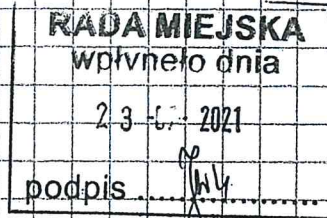 RADA MIEJSKA
wpłynęło dnia
23 - - 2021
podpis ....................